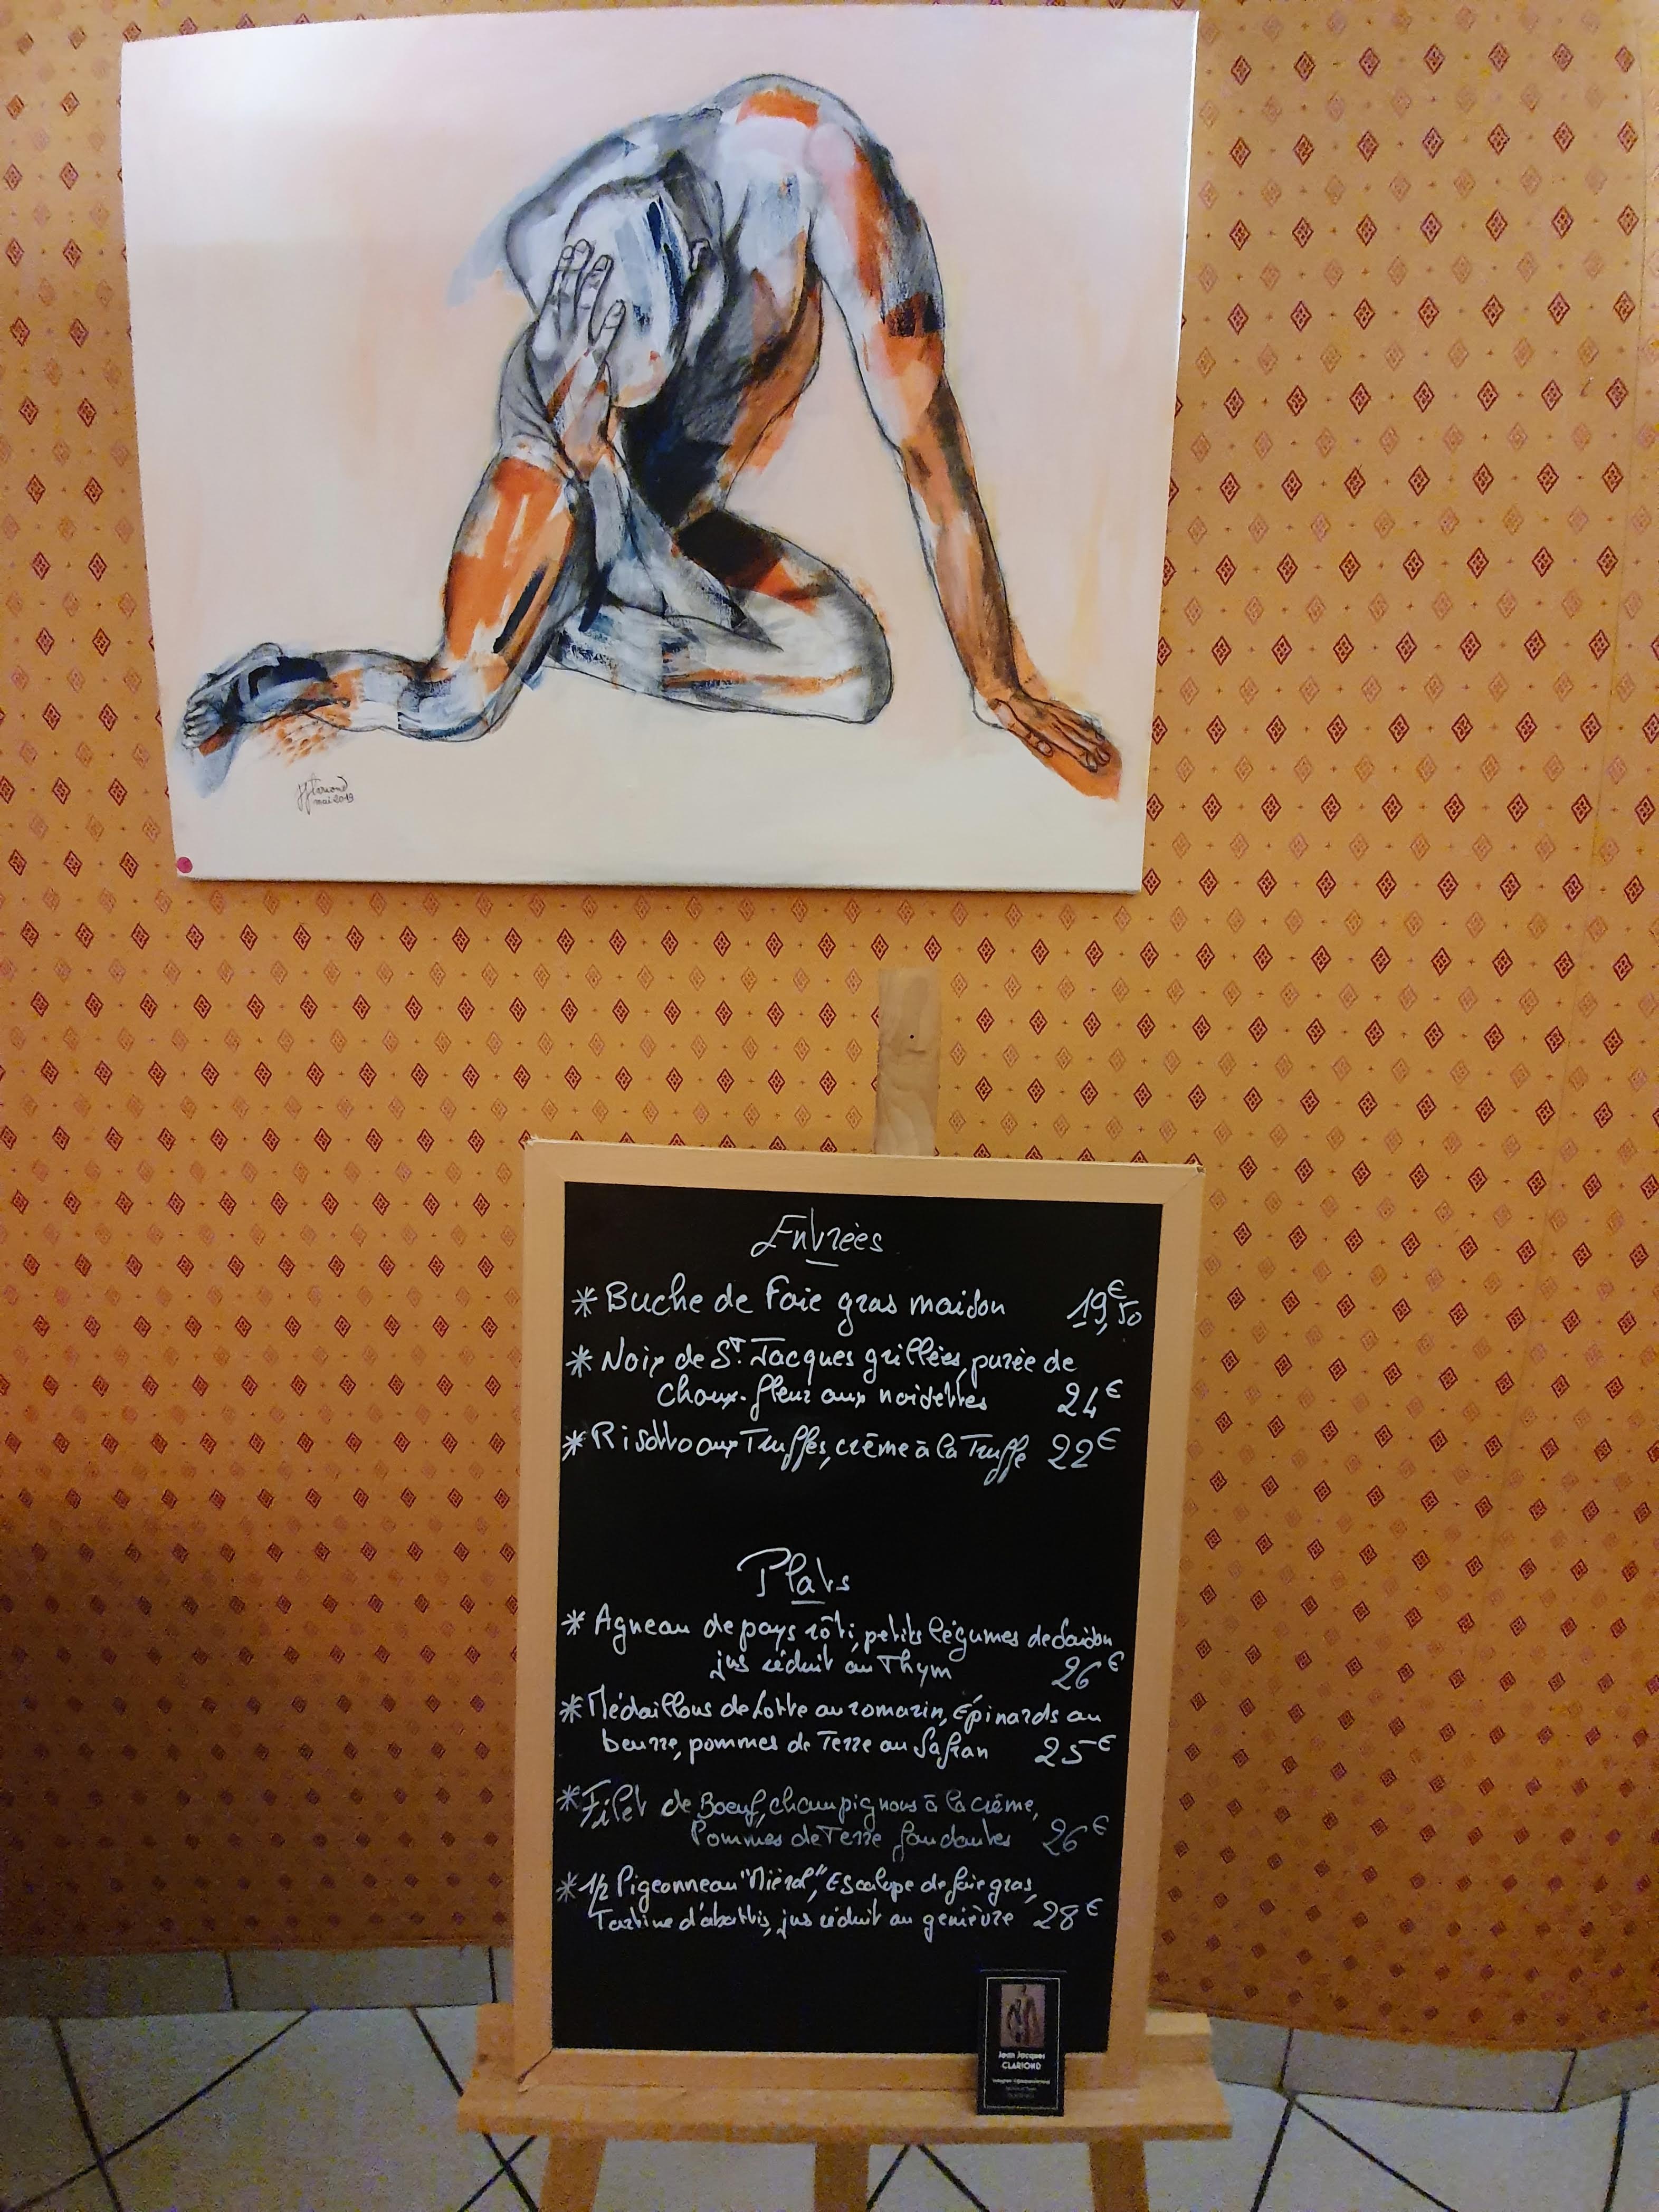 JJClariond
mai 2019
Entrées
* Buche de Foie gras maison 19,50€
* Noix de St. Jacques grillées, purée de
choux-fleur aux noisettes 24€
* Risotto aux Truffes, crème à la Truffe 22€
Plats
* Agneau de pays rôti, petits légumes de Saison
jus réduit au Thym 26€
* Médaillons de Lotte au romarin, Épinards au
beurre, pommes de Terre au Safran 25€
* Filet de Boeuf, champignons à la crème,
Pommes de Terre fondantes 26€
* 1/2 Pigeonneau "Miéral", Escalope de foie gras,
Tartine d'abattis, jus réduit au genièvre 28€
Jean Jacques
CLARIOND